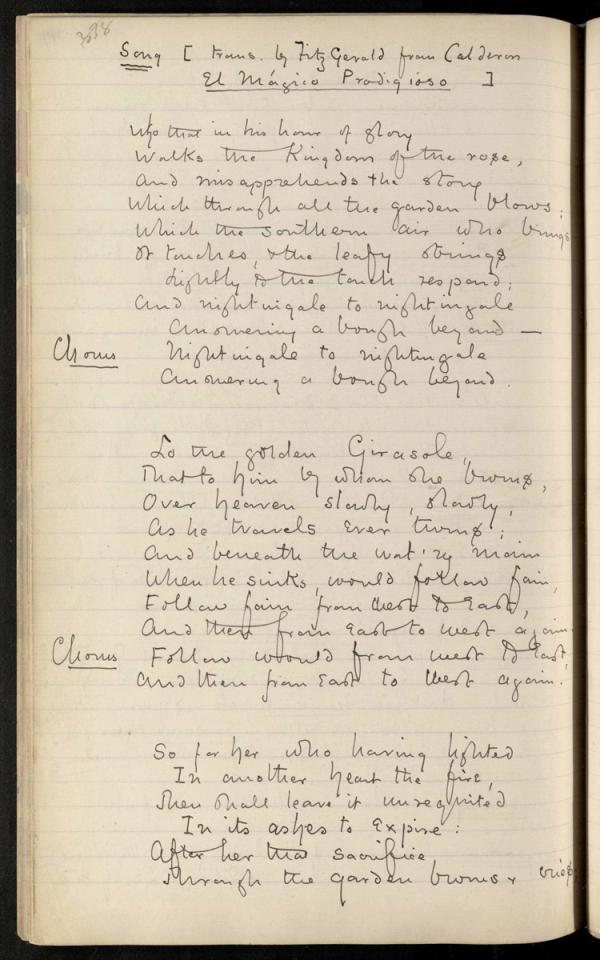 3838
Song [ trans. by FitzGerald from Calderon
El Mágico Prodigioso ]
Who that in his hour of glory
Walks the Kingdom of the rose,
And misapprehends the story
Which through all the garden blows;
Which the southern air who brings
It touches, & the leafy strings
Lightly to the touch respond;
And nightingale to nightingale
Answering a bough beyond —
Chorus Nightingale to nightingale
Answering a bough beyond.
Lo the golden Girasole,
That to him by whom she burns,
Over heaven slowly, slowly,
As he travels ever turns;
And beneath the wat'ry main
When he sinks, would follow fain,
Follow fain from West to East,
And then from East to West again.
Chorus Follow would from west to East,
And then from East to West again.
So for her who having lighted
In another heart the fire,
Then shall leave it unrequited
In its ashes to expire:
After her that sacrifice
Through the garden burns & cries